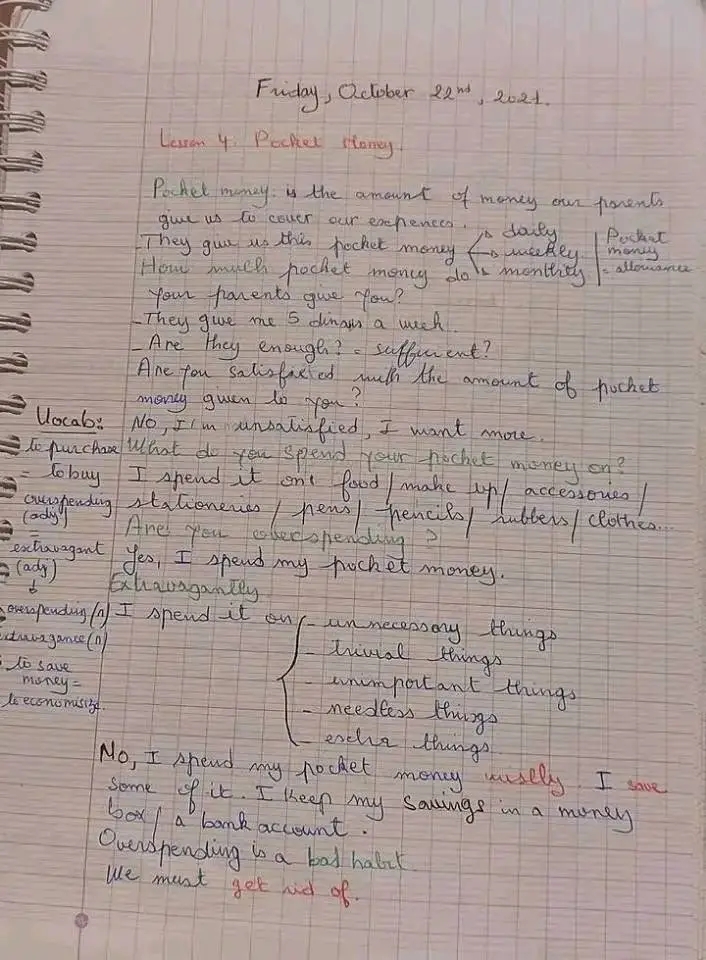 Friday, October 22nd, 2021.
Lesson 4: Pocket Money.
Pocket money: is the amount of money our parents
give us to cover our expences.
- They give us this pocket money → daily → weekly → monthly
Pocket money = allowance
How much pocket money do
your parents give you?
- They give me 5 dinars a week.
- Are they enough? = sufficient?
Are you satisfied with the amount of pocket
money given to you?
No, I'm unsatisfied, I want more.
What do you spend your pocket money on?
I spend it on: food / make up / accessories /
stationeries / pens / pencils / rubbers / clothes...
Are you overspending?
Yes, I spend my pocket money.
Extravagantly
I spend it on - unnecessary things
- trivial things
- unimportant things
- needless things
- extra things
No, I spend my pocket money wisely. I save
some of it. I keep my savings in a money
box / a bank account.
Overspending is a bad habit.
We must get rid of.
Vocab:
to purchase
= to buy
overspending
(adj)
=
extravagant
(adj)
↓
overspending (n)
extravagance (n)
to save
money =
to economise.